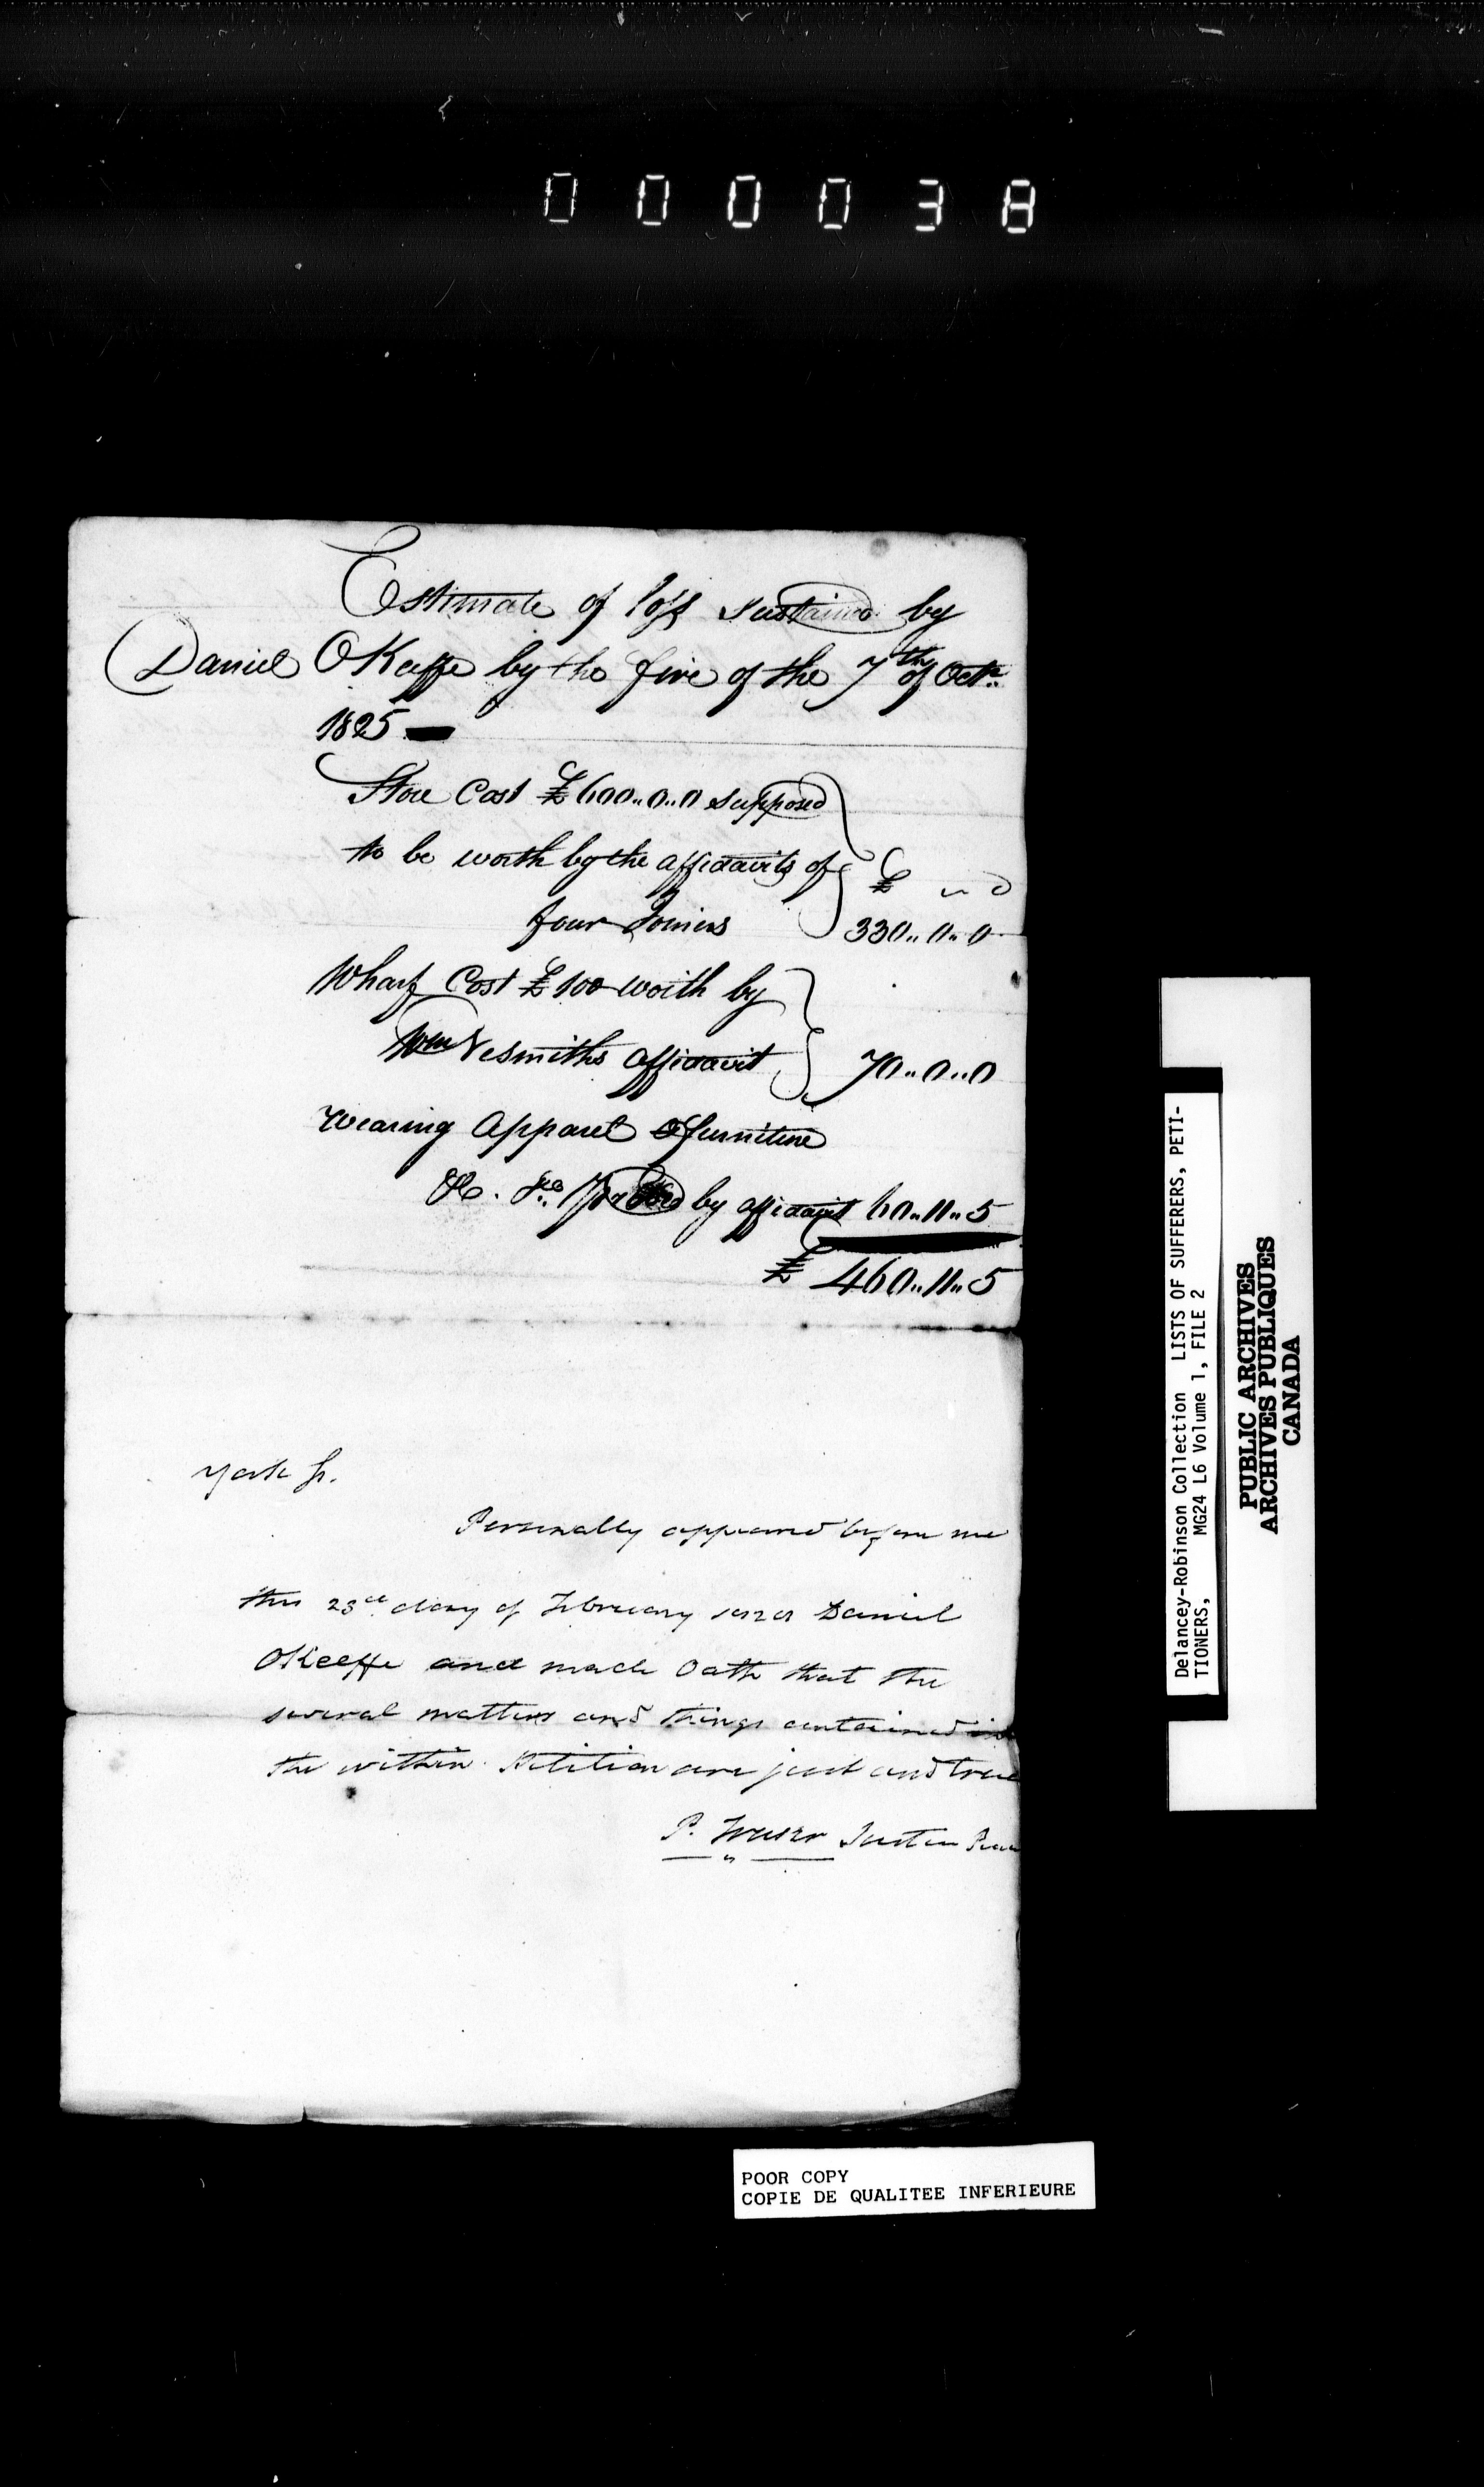 000038
Estimate of loss sustained by
Daniel OKeffe by the fire of the 7th of Octr.
1825
Store Cost £600..0..0 supposed
to be worth by the affidavits of
four Joiners
£ s d
330..0..0
Wharf Cost £100 worth by
Wm Nesmiths affidavit 70..0..0
Wearing Apparel & furniture
&c. &c. proved by affidavit 60..11..5
£ 460..11..5
York Ss.
Personally appeared before me
this 23rd day of February Daniel
OKeeffe and made Oath that the
several matters and things contained in
the within Petition are just and true
P. Fraser Justice Peace
Delancey-Robinson Collection LISTS OF SUFFERERS, PETI-
TIONERS, MG24 L6 Volume 1, FILE 2
PUBLIC ARCHIVES
ARCHIVES PUBLIQUES
CANADA
POOR COPY
COPIE DE QUALITEE INFERIEURE